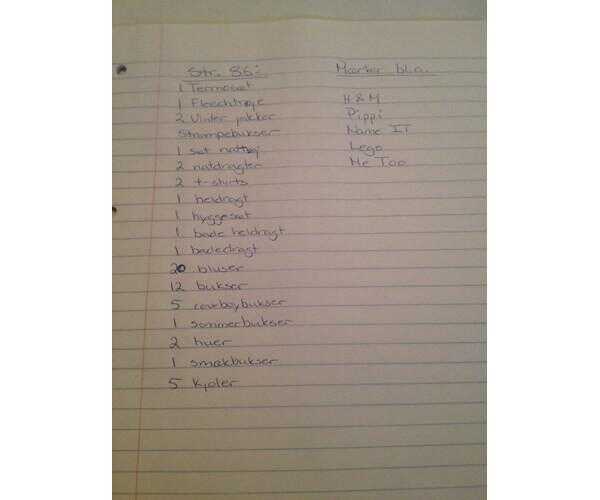 Str. 86:
1 Termosæt
1 Fleecetrøje
2 Vinter jakker
Strømpebukser
1 sæt nattøj
2 natdragter
2 t-shirts
1 heldragt
1 hyggesæt
1 bade heldragt
1 badedragt
20 bluser
12 bukser
5 cowboybukser
1 sommerbukser
2 huer
1 smækbukser
5 Kjoler
Mærker bl.a.
H&M
Pippi
Name IT
Lego
Me Too